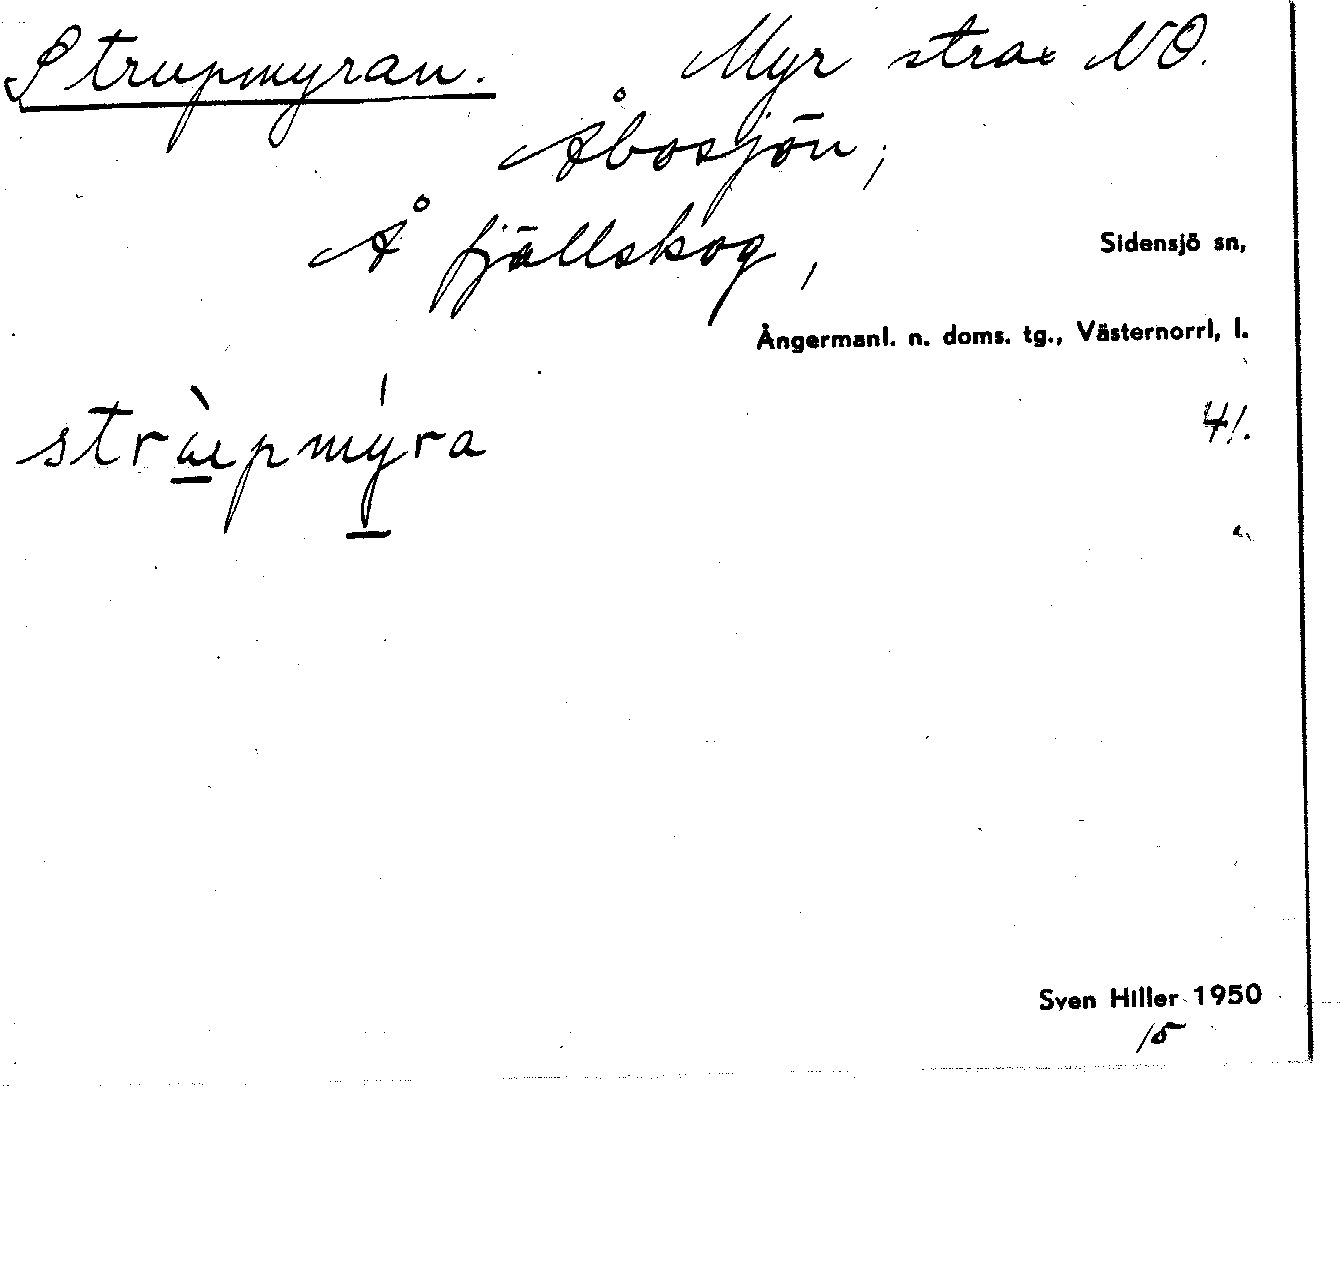 Strupmyran. Myr strax NO.
Åbosjön,
Å fjällskog,
Sidensjö sn,
Ångermanl. n. doms. tg., Västernorrl, l.
41.
Sven Hiller 1950
15